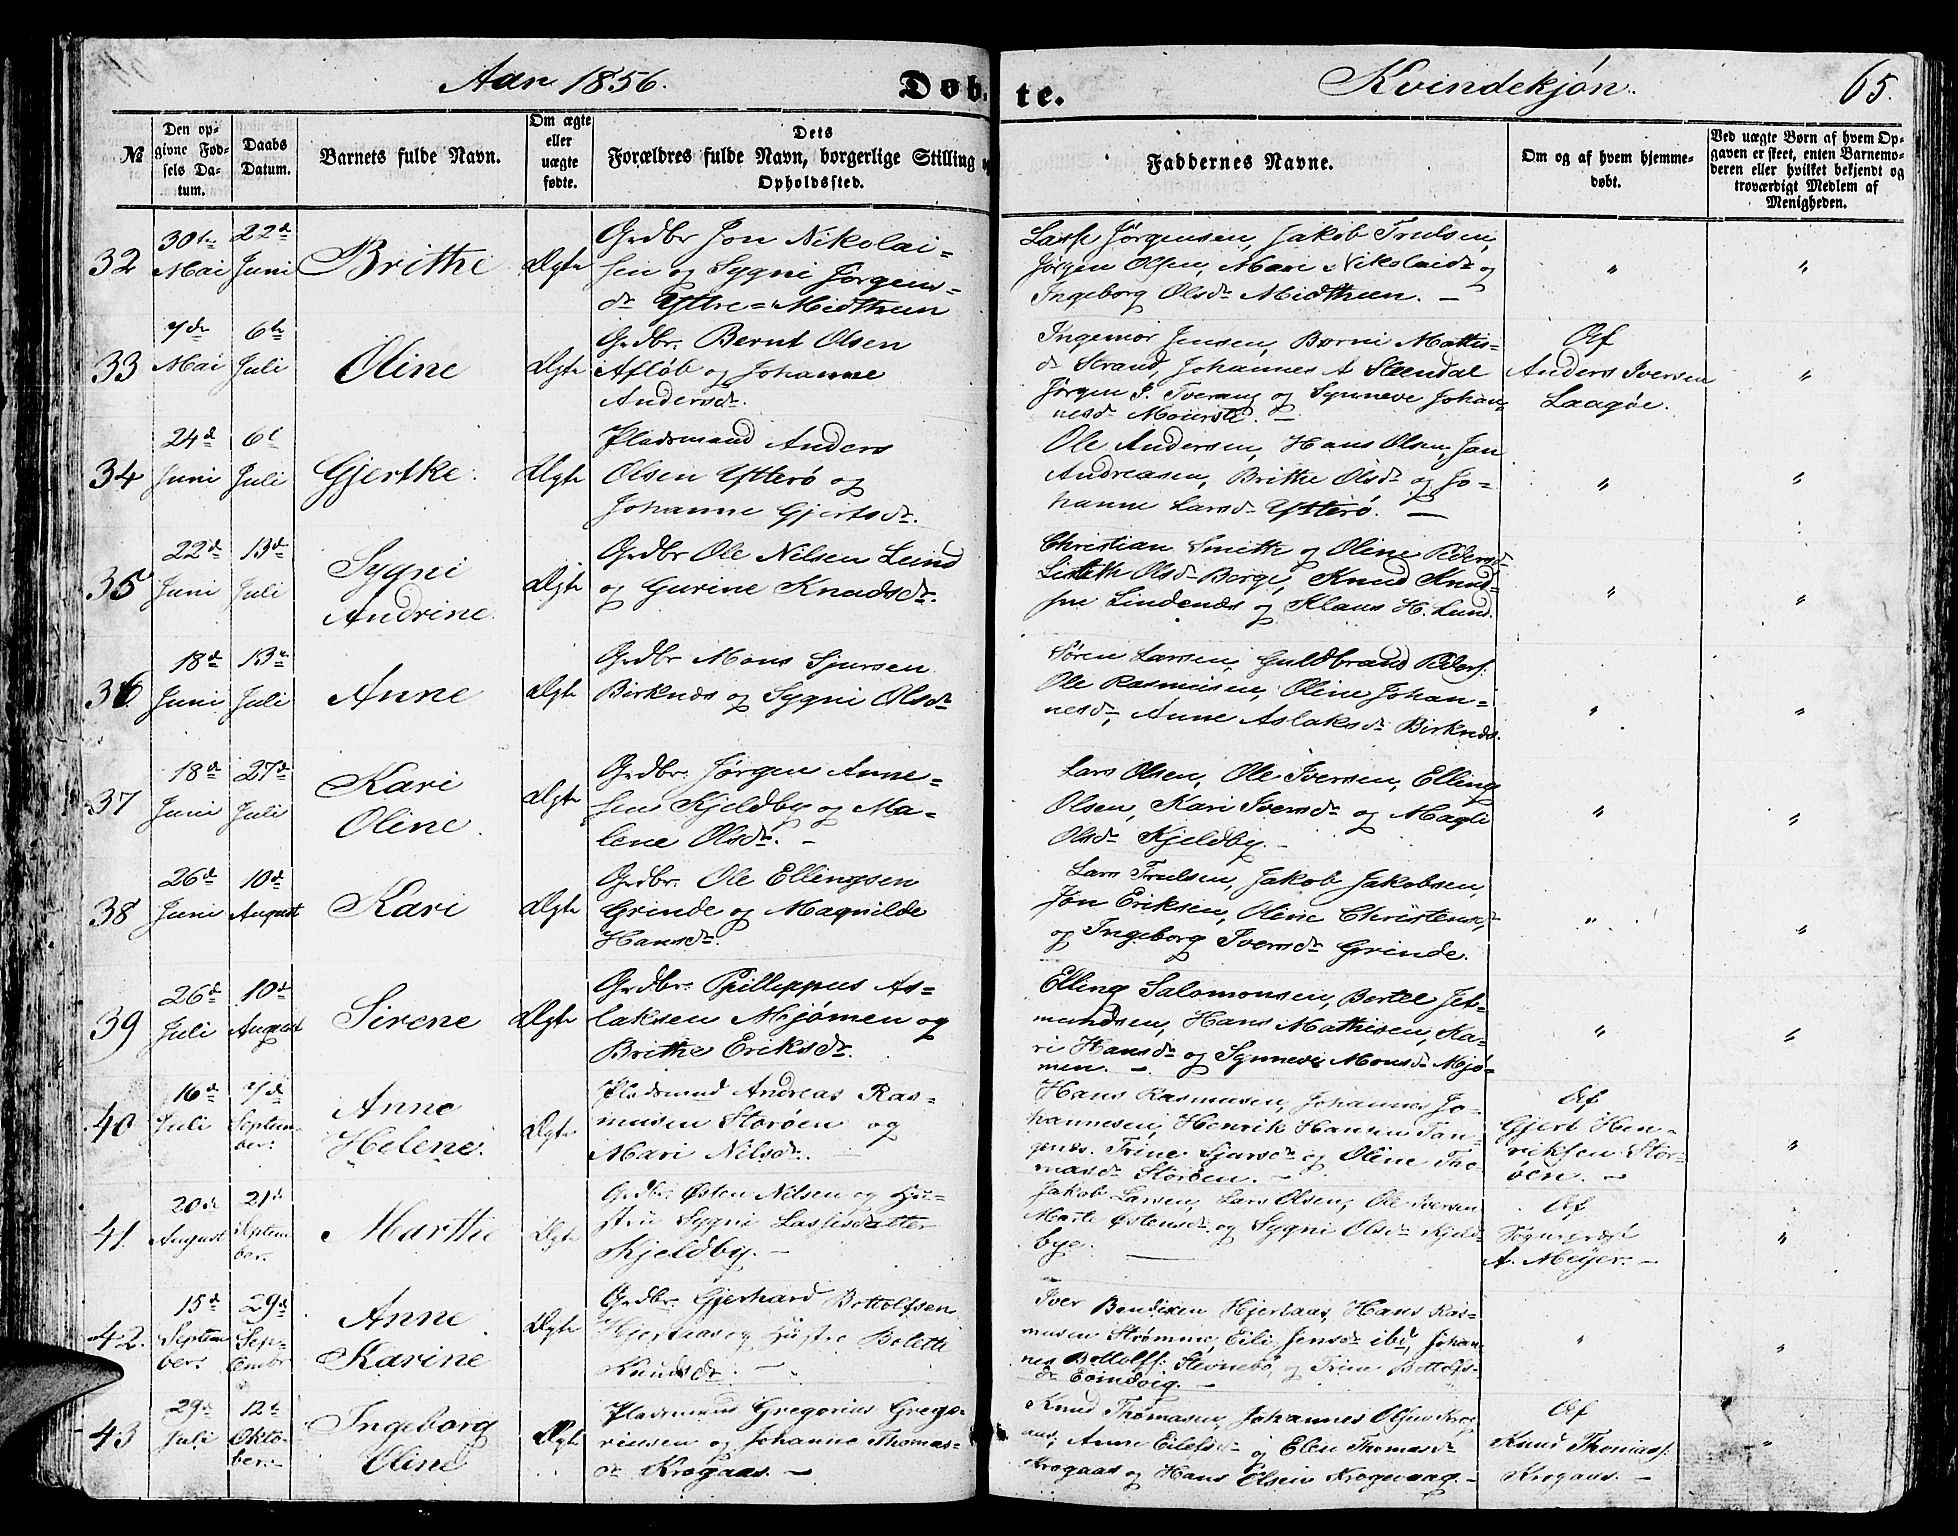 Aar 1856.
Døbte.
Kvindekjøn.
65.
№
Den opgivne Fødsels Datum.
Daabs Datum.
Barnets fulde Navn.
Om ægte eller uægte fødte.
Dets Forældres fulde Navn, borgerlige Stilling og Opholdssted.
Faddernes Navne.
Om og af hvem hjemmedøbt.
Ved uægte Børn af hvem Opgaven er skeet, enten Barnemoderen eller hvilket bekjendt og troværdigt Medlem af Menigheden.
32
30te Mai
22de Juni
Brithe
Ægte
Grdbr Jon Nikolai=
sen og Sygni Jørgens=
dr Yttre=Midthun
Lasse Jørgensen, Jakob Trulsen,
Jørgen Olsen, Mari Nikolaidr og
Ingeborg Olsdr Midthuen. —
"
"
33
7de Mai
6te Juli
Oline
Ægte
Grdbr. Bernt Olsen
Afløb og Johanne
Andersdr.
Ingemor Jensen, Børni Mattis=
dr Strand, Johannes A Steendal
Jørgen P. Tverang og Synneve Johan=
nesdr —
Af
Anders Iversen
Laagøe.
"
34
24de Juni
6te Juli
Gjertke.
Ægte
Pladsmand Anders
Olsen Ytterø og
Johanne Gjertsdr.
Ole Andersen, Hans Olsen, Jan
Andreasen, Brithe Olsdr og Jo=
hanne Larsdr Ytterø. —
"
"
35
22de Juni
13de Juli
Sygni
Andrine.
Ægte
Grdbr Ole Nilsen Lund
og Gurine Knudsdr.
Christian Smith og Oline Pedersdr
Lisbeth Olsdr Berge, Knud Knud=
sen Lindenæs og Klaus H. Lund.
"
"
36
18de Juni
13de Juli
Anne
Ægte
Grdbr Mons Sjursen
Birknæs og Sygni Olsdr
Søren Larsen, Guldbrand Peders:
Ole Rasmusen, Oline Johan=
nesdr, Anne Aslaksdr Birknæs.
"
"
37
18de Juni
27de Juli
Kari
Oline.
Ægte
Grdbr. Jørgen Anne=
sen Kjeldby og Ma=
lene Olsdr. —
Lars Olsen, Ole Iversen, Elling
Olsen, Kari Iversdr og Magli
Olsdr Kjeldby. —
"
"
38
26de Juni
10de August
Kari
Ægte
Grdbr. Ole Ellingsen
Grinde og Magnilde
Hansdr.
Lars Trulsen, Jakob Jakobsen,
Jøn Eriksen, Oline Christensdr,
og Ingeborg Iversdr Grinde.
"
"
39
26de Juli
10de August
Sirene
Ægte
Grdbr. Pillippus As=
laksen Mjømen og
Brithe Eriksdr.
Elling Salomonsen, Bertel Jet=
mundsen, Hans Mathisen, Ka=
ri Hansdr og Synneve Monsdr Mjø=
men. —
"
"
40
16de Juli
7de September.
Anne
Helene.
Ægte
Pladsmand Andreas Ras=
musen Storøen og
Mari Nilsdr. —
Hans Rasmusen, Johannes Jo=
hannesen, Henrik Hansen Tan=
genes. Trine Sjursdr og Oline Tho=
masdr Storøen. —
Af
Gjert Hen=
riksen Stor=
øen. —
"
41.
20de August
21de September.
Marthe
Ægte
Grdbr. Østen Nilsen og Hu=
stru Sygni Lassesdatter
Kjeldby. —
Jakob Larsen, Lars Olsen, Ole Iversen
Marte Østensdr og Sygni Olsdr Kjeld=
bye.
Af
Sogneprest
A. Meyer. —
"
42.
15de September.
29de September
Anne
Karine
Ægte
Grdbr. Gjerhard Bottolfsen
Hjertaas og Hustru Bolette
Knudsdr. —
Iver Bendixen Hjertaas, Hans Ras=
musen Strømme, Eili Jensdr ibd, Johan=
nes Bottolfs: Stevnebø, og Trine Bottolfs=
dr Evindvig. —
"
"
43
29de Juli
12te Oktober. —
Ingeborg
Oline
Ægte
Pladsmand Gregorius Grego=
riusen og Johanne Thomas=
dr Krogaas. —
Knud Thomasen, Johannes Olsen Krog=
aas, Anne Eilefsdr og Elen Thomasdr
Krogaas og Hans Olsen Krogevaag. —
Af
Knud Thomass:
Krogaas. —
"